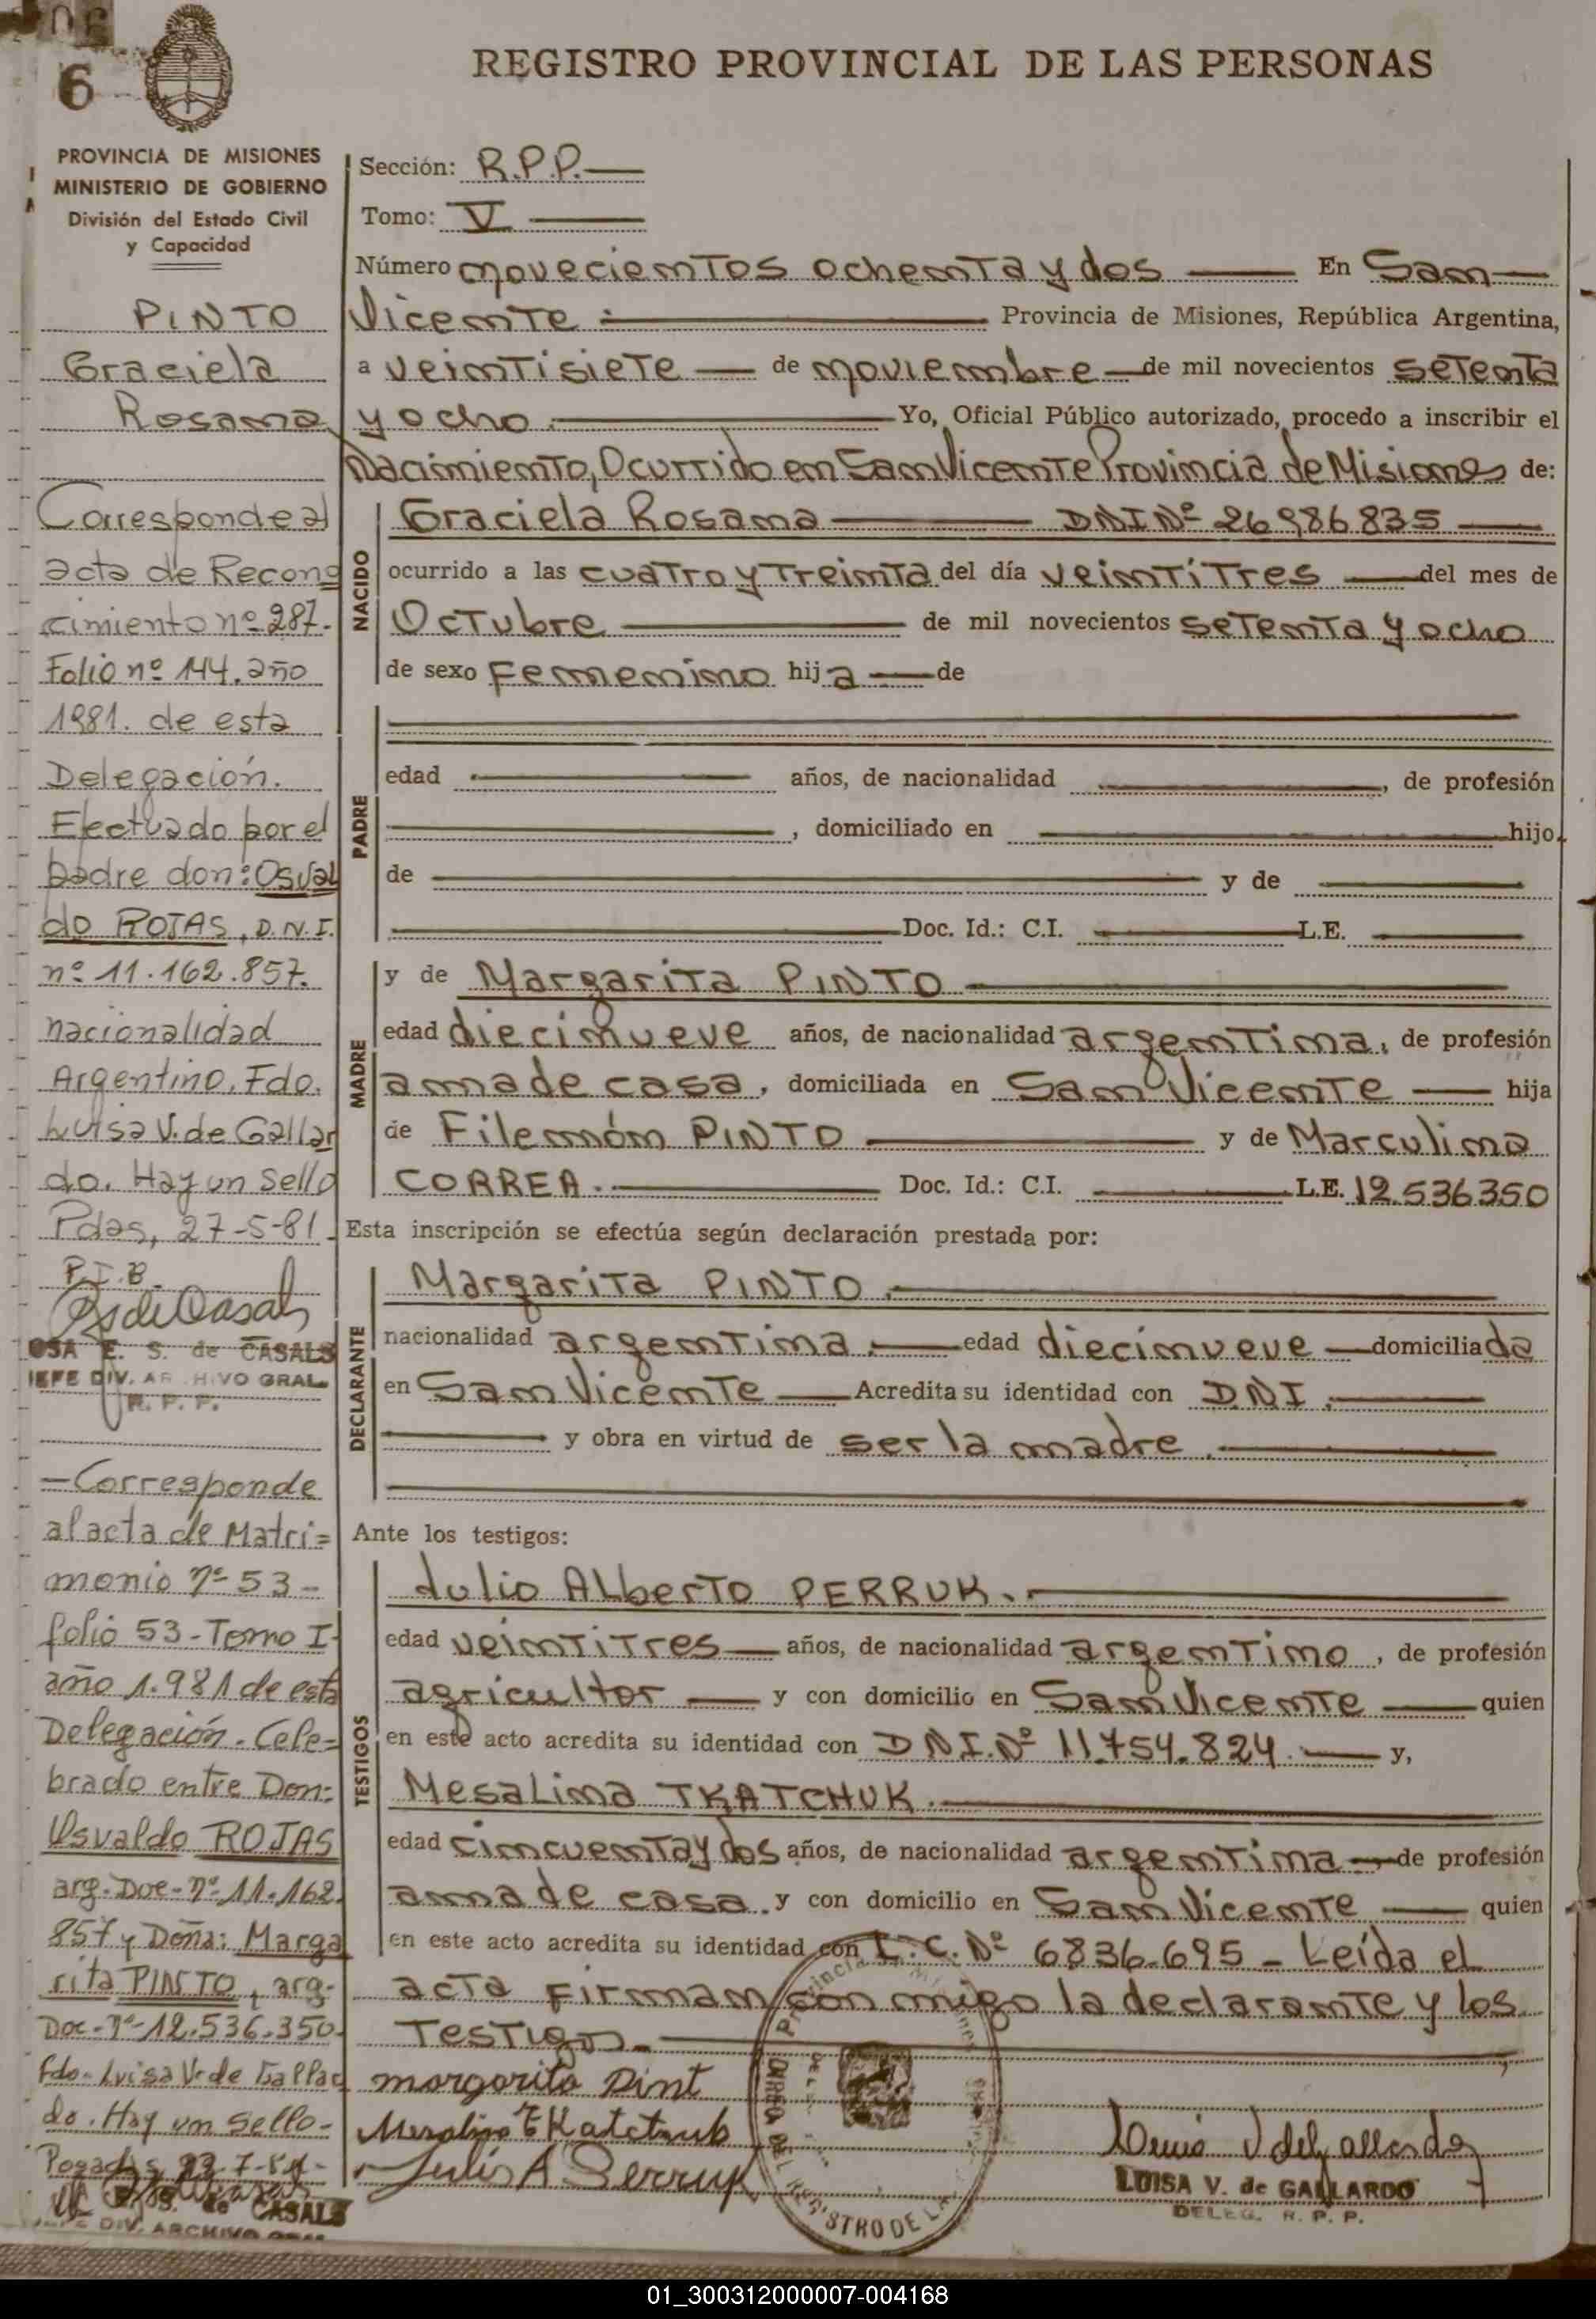 6
REGISTRO PROVINCIAL DE LAS PERSONAS
PROVINCIA DE MISIONES
MINISTERIO DE GOBIERNO
División del Estado Civil
y Capacidad
PINTO
Graciela
Rosana
Corresponde al
acta de Recono
cimiento nº 287.
Folio nº 144. año
1981. de esta
Delegación.
Efectuado por el
padre don: Osval
do ROJAS, D.N.I.
nº 11.162.857.
nacionalidad
Argentino. Fdo.
Luisa V. de Gallar
do. Hay un Sello
Pdas, 27-5-81.
P.I.B.
OSA E. S. de CASALS
JEFE DIV. ARCHIVO GRAL.
R. P. P.
—Corresponde
al acta de Matri=
monio nº 53-
folio 53-Tomo I-
año 1.981 de esta
Delegación. Cele=
brado entre Don:
Osvaldo ROJAS
arg. Doc. nº 11.162.
857 y Doña: Marga
rita PINTO, arg.
Doc. nº 12.536.350.
Fdo. Luisa V. de Gallar
do. Hay un Sello-
Posadas, 23-7-81-
E. S. de CASALS
JEFE DIV. ARCHIVO GRAL
Sección: R.P.P.—
Tomo: V —
Número novecientos ochenta y dos — En San—
Vicente .— Provincia de Misiones, República Argentina,
a veintisiete — de noviembre — de mil novecientos setenta
y ocho .— Yo, Oficial Público autorizado, procedo a inscribir el
Nacimiento, Ocurrido en San Vicente Provincia de Misiones de:
NACIDO
Graciela Rosana — DNI Nº 26986835 —
ocurrido a las cuatro y treinta del día veintitres — del mes de
Octubre — de mil novecientos setenta y ocho
de sexo Femenino hija — de
PADRE
edad — años, de nacionalidad —, de profesión
—, domiciliado en — hijo
de — y de —
— Doc. Id.: C.I. — L.E. —
MADRE
y de Margarita PINTO —
edad diecinueve años, de nacionalidad argentina, de profesión
ama de casa, domiciliada en San Vicente — hija
de Filemón PINTO — y de Marculina
CORREA .— Doc. Id.: C.I. — L.E. 12.536350
Esta inscripción se efectúa según declaración prestada por:
DECLARANTE
Margarita PINTO .—
nacionalidad argentina .— edad diecinueve — domiciliada
en San Vicente — Acredita su identidad con D.N.I .—
— y obra en virtud de ser la madre .—
Ante los testigos:
TESTIGOS
Julio Alberto PERRUK. —
edad veintitres — años, de nacionalidad argentino, de profesión
agricultor — y con domicilio en San Vicente — quien
en este acto acredita su identidad con D N I. Nº 11.754.824. — y,
Mesalina TKATCHUK. —
edad cincuenta y dos años, de nacionalidad argentina — de profesión
ama de casa. y con domicilio en San Vicente — quien
en este acto acredita su identidad con L.C. Nº 6836.695 - Leída el
acta Firman con migo la declarante y los
Testigos. —
margarita Pint
Mesalina TKatchuk
Julio A Perruk
LUISA V. de GALLARDO
DELEG. R. P. P.
01_300312000007-004168